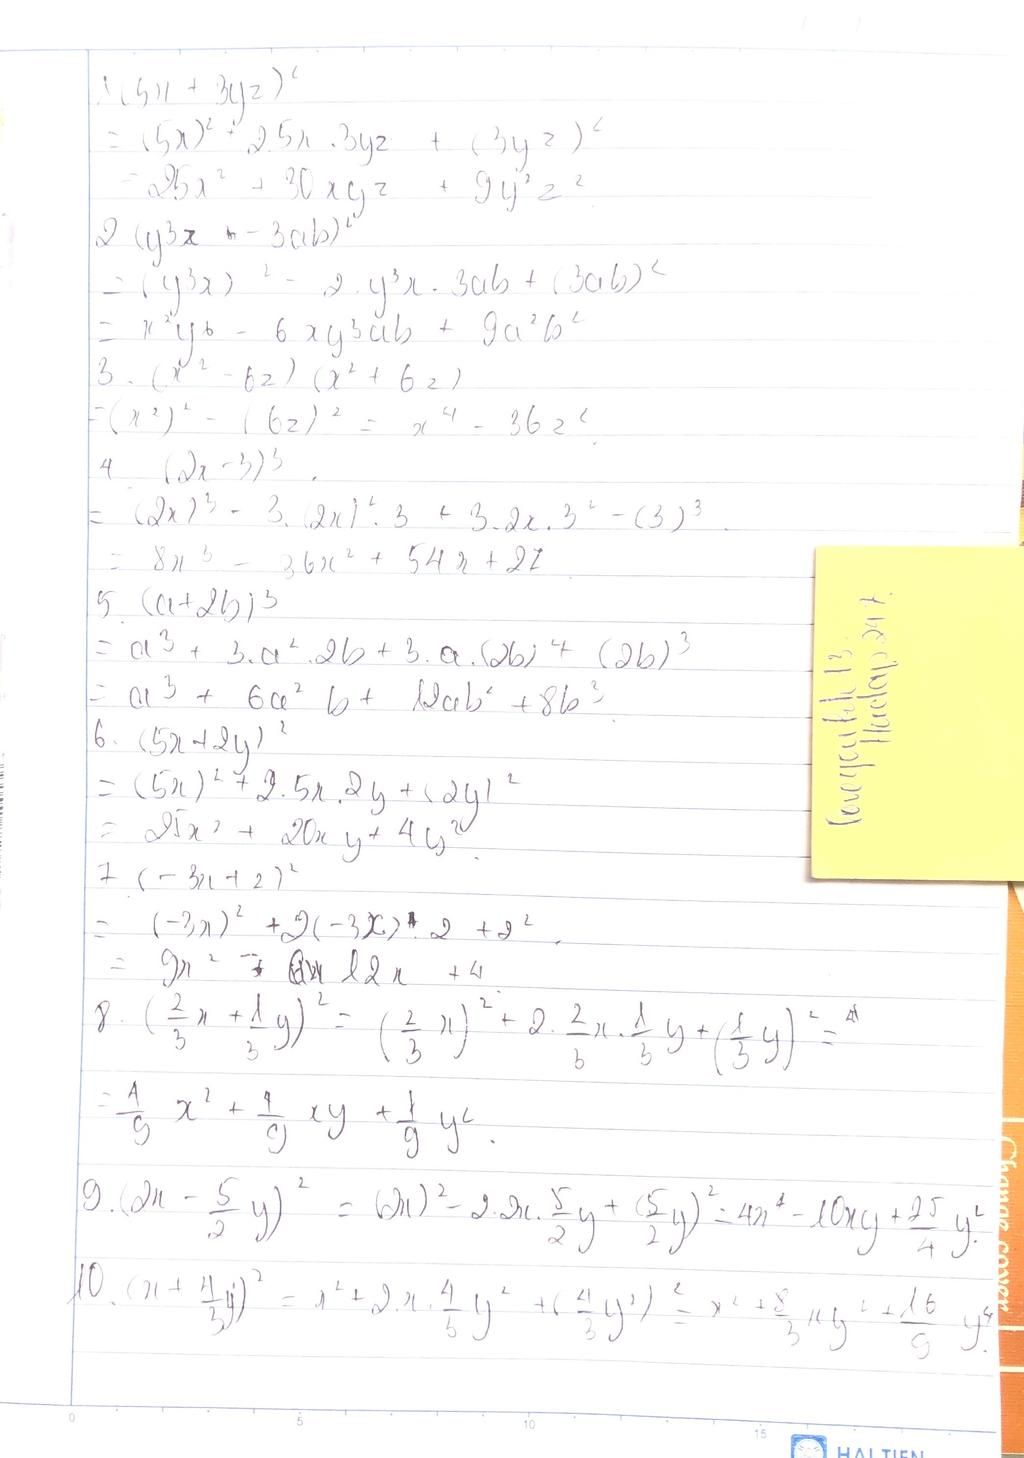 1 (5x + 3yz)²
= (5x)² + 2.5x.3yz + (3yz)²
= 25x² + 30xyz + 9y²z²
2 (y³x - 3ab)²
= (y³x)² - 2.y³x.3ab + (3ab)²
= x²y6 - 6xy³ab + 9a²b²
3. (x² - 6z)(x² + 6z)
= (x²)² - (6z)² = x⁴ - 36z²
4 (2x - 3)³
= (2x)³ - 3.(2x)².3 + 3.2x.3² - (3)³
= 8x³ - 36x² + 54x + 27
5 (a+2b)³
= a³ + 3.a².2b + 3.a.(2b)² + (2b)³
= a³ + 6a²b + 12ab² + 8b³
6. (5x+2y)²
= (5x)² + 2.5x.2y + (2y)²
= 25x² + 20xy + 4y²
7 (-3x+2)²
= (-3x)² + 2(-3x).2 + 2²
= 9x² - 12x + 4
8. (2/3 x + 1/3 y)² = (2/3 x)² + 2.2/3 x.1/3 y + (1/3 y)² =
= 4/9 x² + 4/9 xy + 1/9 y².
9. (2x - 5/2 y)² = (2x)² - 2.2x.5/2 y + (5/2 y)² = 4x² - 10xy + 25/4 y².
10. (x + 4/3 y²)² = x² + 2.x.4/3 y² + (4/3 y²)² = x² + 8/3 xy² + 16/9 y⁴.
Hoidap247
Change cover
0 5 10 15
HẢI TIẾN